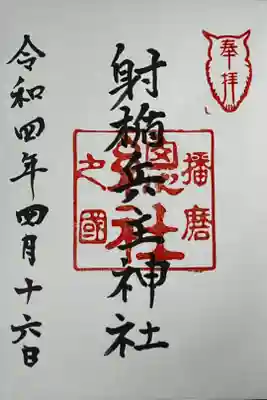 奉拝
射楯兵主神社
播磨
之國
総社
令和四年四月十六日